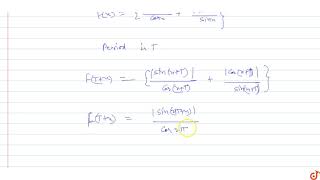 f(x) = 2 { / cos x + / sin x }
Period is T
f(T+x) = { |sin(x+T)| / cos(x+T) + |cos(x+T)| / sin(x+T) }
f(T+x) = |sin(π+x)| / cos 2π